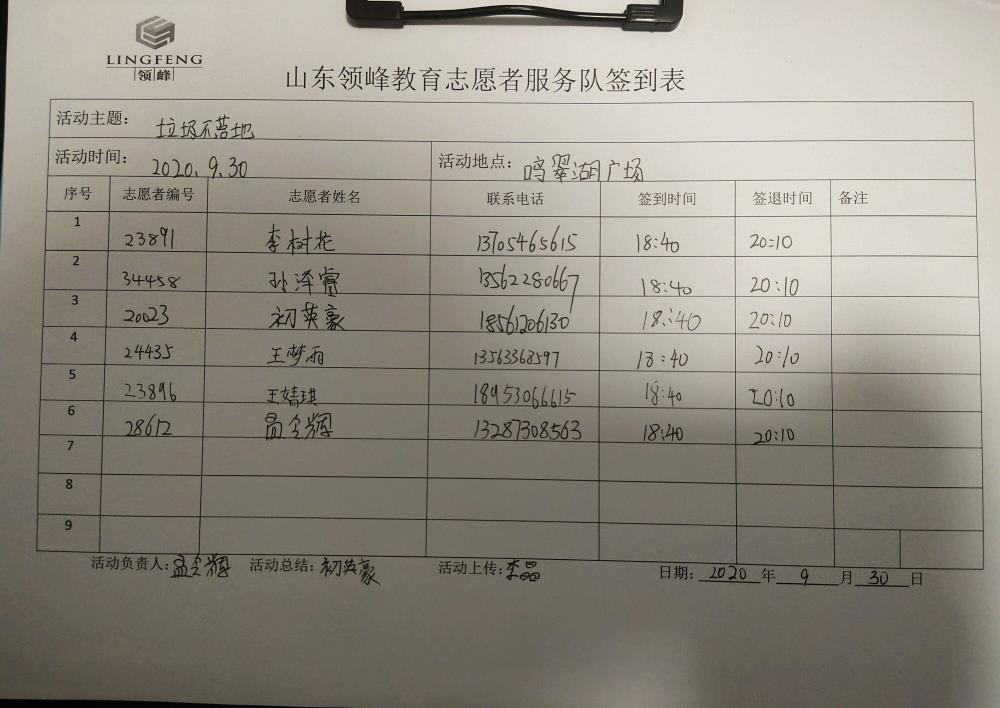 LINGFENG
领峰
山东领峰教育志愿者服务队签到表
活动主题： 垃圾不落地
活动时间： 2020.9.30 活动地点： 鸣翠湖广场
序号 志愿者编号 志愿者姓名 联系电话 签到时间 签退时间 备注
1 23891 李树花 13705465615 18:40 20:10
2 34458 孙泽睿 13562280667 18:40 20:10
3 20023 初英豪 18561206130 18:40 20:10
4 24435 王梦雨 13563368597 18:40 20:10
5 23896 王婧琪 18953066615 18:40 20:10
6 28612 13287308563 18:40 20:10
7
8
9
活动负责人： 活动总结：初英豪 活动上传：李晶 日期： 2020 年 9 月 30 日